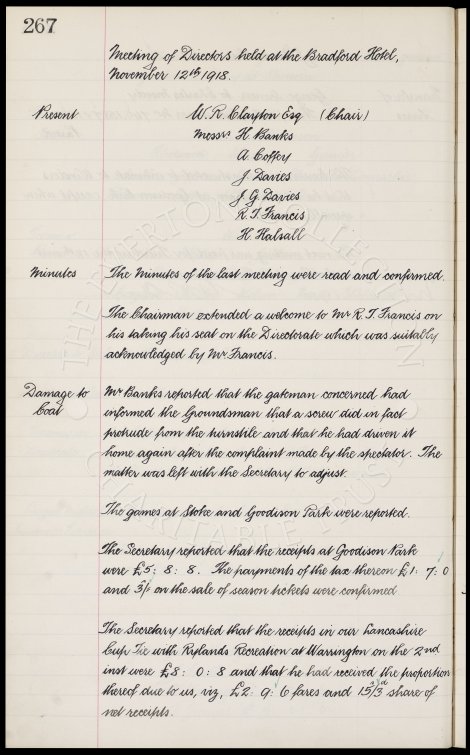 267
Meeting of Directors held at the Bradford Hotel,
November 12th 1918.
Present W. R. Clayton Esq (Chair)
Messrs H. Banks
A. Coffey
J. Davies
J. G. Davies
R. T. Francis
H. Halsall
Minutes The Minutes of the last meeting were read and confirmed.
The Chairman extended a welcome to Mr R. T. Francis on
his taking his seat on the Directorate which was suitably
acknowledged by Mr Francis.
Damage to Mr Banks reported that the gateman concerned had
Coat informed the Groundsman that a screw did in fact
protrude from the turnstile and that he had driven it
home again after the complaint made by the spectator. The
matter was left with the Secretary to adjust.
The games at Stoke and Goodison Park were reported.
The Secretary reported that the receipts at Goodison Park
were £5: 8: 8. The payments of the tax thereon £1: 7: 0
and 3/1 on the sale of season tickets were confirmed
The Secretary reported that the receipts in our Lancashire
Cup Tie with Rylands Recreation at Warrington on the 2nd
inst were £8: 0: 8 and that he had received the proportion
thereof due to us, viz, £2: 9: 6 fares and 15/3d share of
net receipts.
THE EVERTON COLLECTION
CHARITABLE TRUST